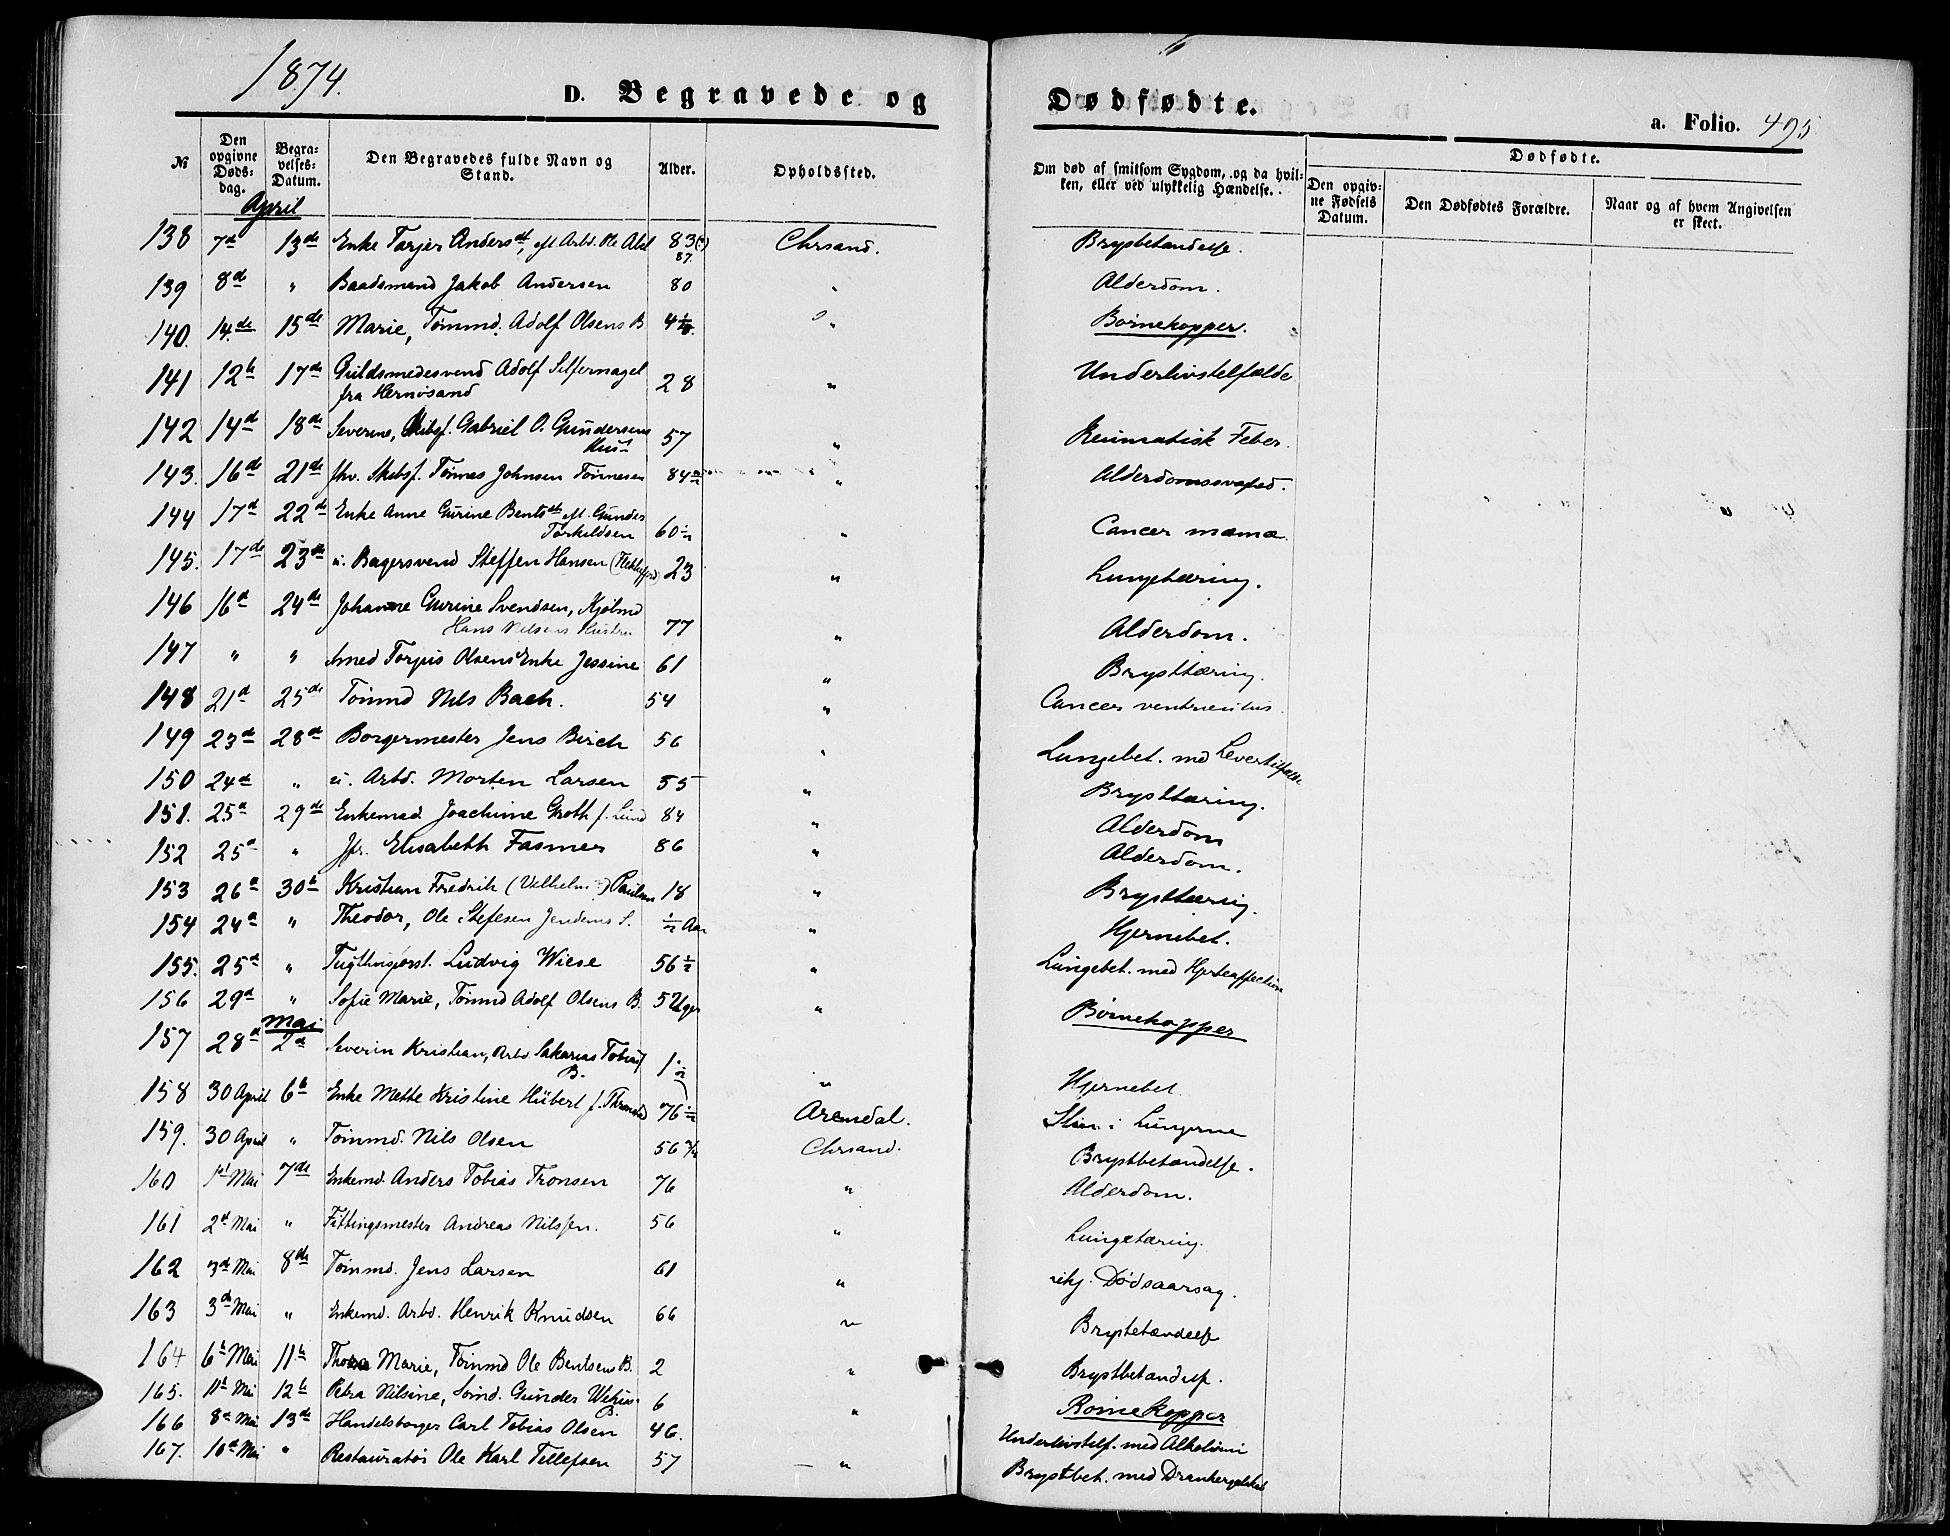 1874.
D. Begravede og Dødfødte.
a. Folio. 495
№ | Den opgivne Døds-dag. | Begra-velses-Datum. | Den Begravedes fulde Navn og Stand. | Alder. | Opholdssted. | Om død af smitsom Sygdom, og da hvil-ken, eller ved ulykkelig Hændelse. | Dødfødte. | Den opgiv-ne Fødsels Datum. | Den Dødfødtes Forældre. | Naar og af hvem Angivelsen er skeet.
April
138 7d 13de Enke Tarjer Andersdt, eft. Arbd. Ole Abel 83(?) 87. Chrsand. Brystbetændelse.
139 8de " Baadsmand Jakob Andersen 80 " Alderdom.
140. 14de 15de Marie, Tømmd. Adolf Olsens B. 4 " Børnekopper.
141 12te 17de Guldsmedesvend Adolf Silfernagel
fra Hernösand 28 " Underlivstilfælde
142 14de 18de Severine, Skibsf. Gabriel O. Gundersens
Hust 57 " Reumatisk Feber.
143. 16de 21de fhv. Skibsf. Tønnes Johnsen Tønnesen 84½ " Alderdomssvaghed.
144 17de 22de Enke Anne Gurine Bentsdt eft. Gunder
Torkildsen 60½ " Cancer mamæ
145. 17de 23de u. Bagersvend Steffen Hansen (Flekkefjord) 23 " Lungetæring.
146 16d 24de Johanne Gurine Svendsen, Kjølmd
Hans Nilsens Hustru 77 " Alderdom.
147 " " Smed Torjus Olsens Enke Jessine 61 " Brysttæring.
148 21d 25de Tømmd Nils Bach. 54 " Cancer ventriculus
149 23de 28de Borgermester Jens Birch 56 " Lungebet. md Levertilfælde
150 24de " u. Arbd. Morten Larsen 55 " Brysttæring.
151. 25d 29de Enkemad. Joachime Groth f. Lund 84 " Alderdom
152 25d " Jfr. Elisabeth Fasmer 86 " Alderdom.
153 26d 30te Kristian Fredrik (Vilhelm ?) Paulsen 18 " Brysttæring.
154 24d " Theodor, Ole Stefesen S. ½ Aar " Hjernebet.
155. 25d " Tugthusforst. Ludvig Wiese 56½ " Lungebet. med Hjerteaffection
156 29d " Sofie Marie, Tømmd Adolf Olsens B. 5 Uger " Børnekopper
Mai
157 28d 2d Severin Kristian, Arbd Sakarias Tobias
B. 1½ " Hjernebet
158 30 April 6te Enke Mette Kristine Hübert f. 76½ Arendal. Slim i Lungerne
159. 30 April " Tømmd. Nils Olsen 56 Chrsand. Brystbetændelse.
160 1st Mai 7de Enkemd. Anders Tobias Tronsen 76 " Alderdom.
161 2d Mai " Fittingsmester Andreas Nilssen. 56 " Lungetæring.
162 3de Mai 8de Tømmd. Jens Larsen 61 " Dødsaarsag.
163 3de Mai " Enkemd. Arbd. Henrik Knudsen 66 " Brystbetændelse
164 6te Mai 11te Thora Marie, Tømmd Ole Bentsens B. 2 " Brystbetændelse.
165. 11te Mai 12te Petra Nilsine, Sømd. Gunder
B. 6 " Børnekopper
166 8de Mai 13de Handelsborger Carl Tobias Olsen 46. Underlivstilf. med Alkolismi
167. 10de Mai " Restauratør Ole Karl Tellefsen 57 " Brystbet. med Drankergalskab